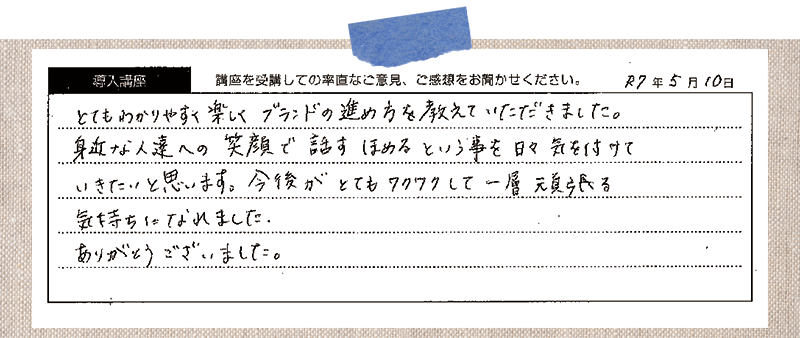 導入講座 講座を受講しての率直なご意見、ご感想をお聞かせください。 R7年5月10日
とてもわかりやすく楽しくブランドの進め方を教えていただきました。
身近な人達への笑顔で話すほめるという事を日々気を付けて
いきたいと思います。今後がとてもワクワクして一層頑張る
気持ちになれました.
ありがとうございました。